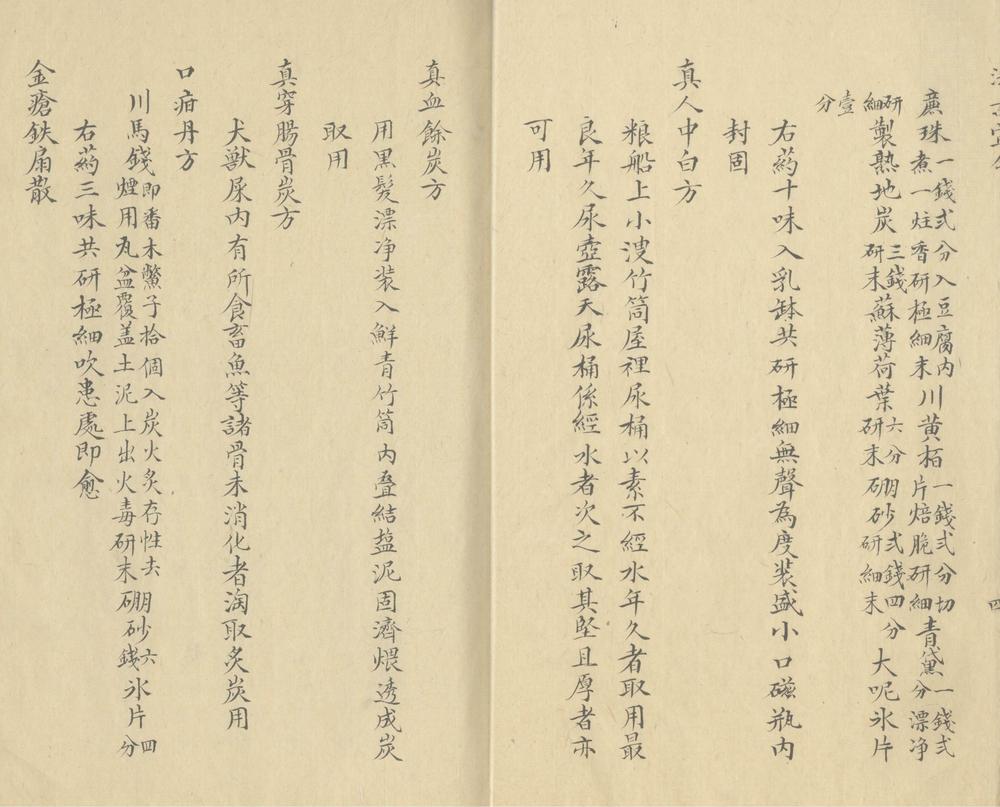 廉珠一錢弍分入豆腐内煮一炷香研極細末川黄栢一錢弍分切片焙脆研細青黛一錢弍分漂净
研細製熟地炭三錢研末蘇薄荷葉六分研末硼砂弍錢四分研細末大呢氷片
壹分
右药十味入乳缽共研極細無聲為度裝盛小口磁瓶内
封固
真人中白方
粮船上小溲竹筒屋裡尿桶以素不經水年久者取用最
良年久尿壺露天尿桶係經水者次之取其坚且厚者亦
可用
真血餘炭方
用黒髮漂净裝入鮮青竹筒内叠結塩泥固濟煨透成炭
取用
真穿腸骨炭方
犬獸屎内有所食畜魚等諸骨未消化者淘取炙炭用
口疳丹方
川馬錢即番木鱉子拾個入炭火炙存性去煙用瓦盆覆盖土泥上出火毒研末硼砂六錢氷片四分
右药三味共研極細吹患處即愈
金瘡鉄扇散